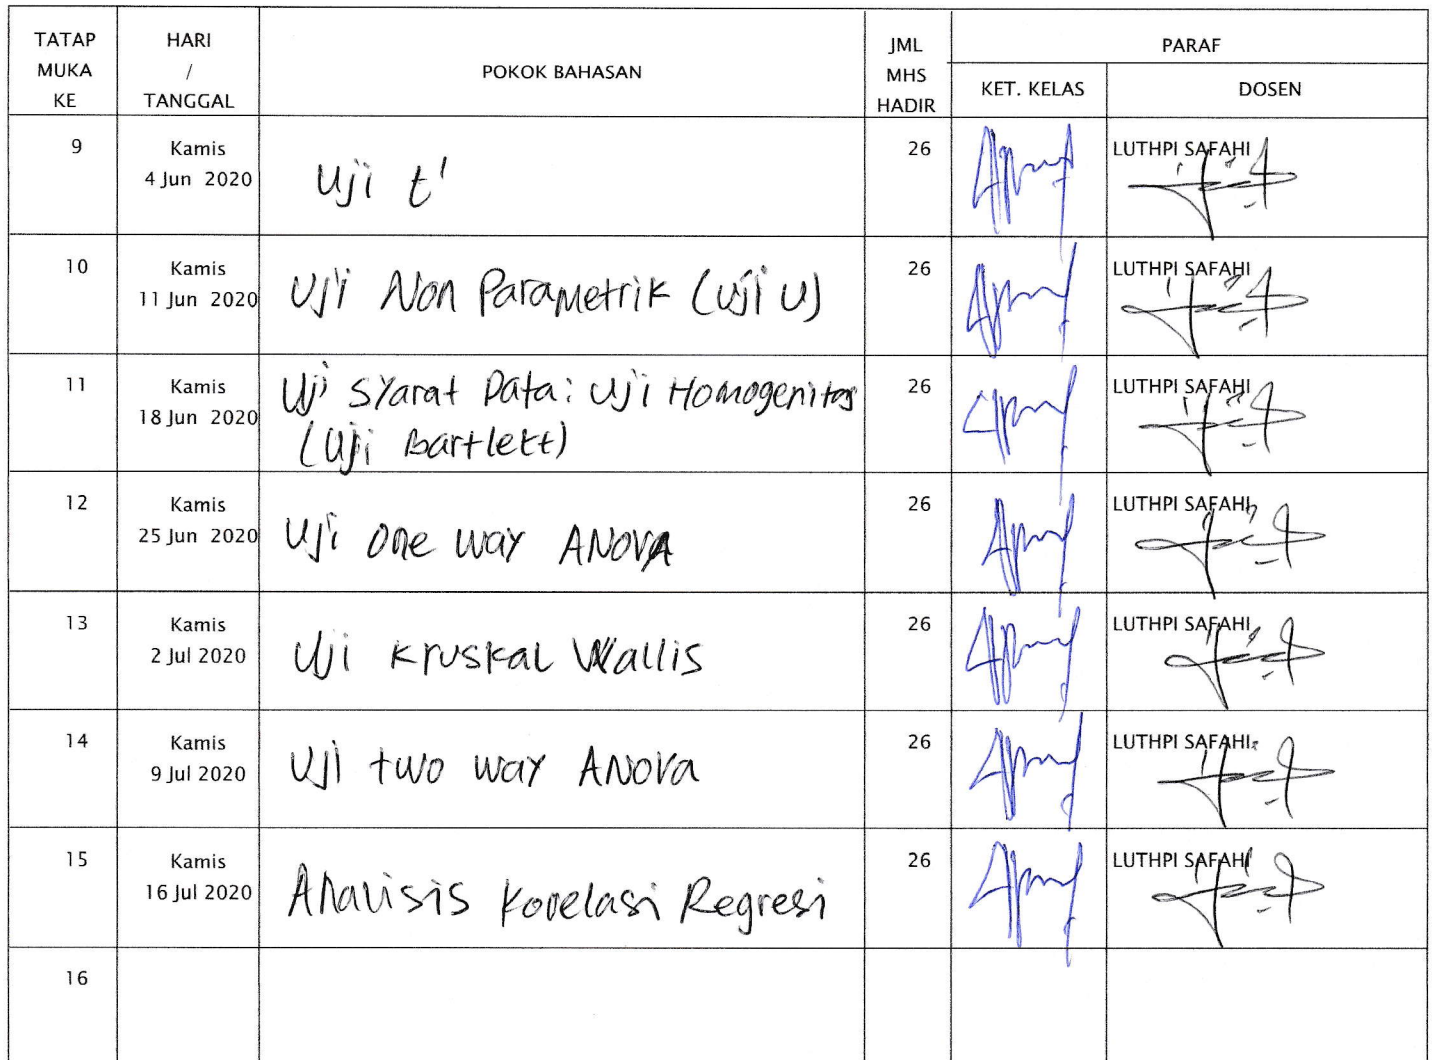 TATAP MUKA KE
HARI / TANGGAL
POKOK BAHASAN
JML MHS HADIR
PARAF
KET. KELAS
DOSEN
9
Kamis
4 Jun 2020
Uji t'
26
LUTHPI SAFAHI
10
Kamis
11 Jun 2020
Uji Non Parametrik (Uji U)
26
LUTHPI SAFAHI
11
Kamis
18 Jun 2020
Uji Syarat Data: Uji Homogenitas
(Uji Bartlett)
26
LUTHPI SAFAHI
12
Kamis
25 Jun 2020
Uji one way ANOVA
26
LUTHPI SAFAHI
13
Kamis
2 Jul 2020
Uji Kruskal Wallis
26
LUTHPI SAFAHI
14
Kamis
9 Jul 2020
Uji two way ANOVA
26
LUTHPI SAFAHI
15
Kamis
16 Jul 2020
Analisis Korelasi Regresi
26
LUTHPI SAFAHI
16